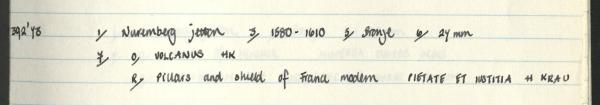 392'73 1/ Nuremberg jetton 3/ 1580-1610 5/ Bronze 6/ 24 mm
7/ O, VOLCANUS HK
R, Pillars and shield of France modern PIETATE ET IUSTITIA H KRAU